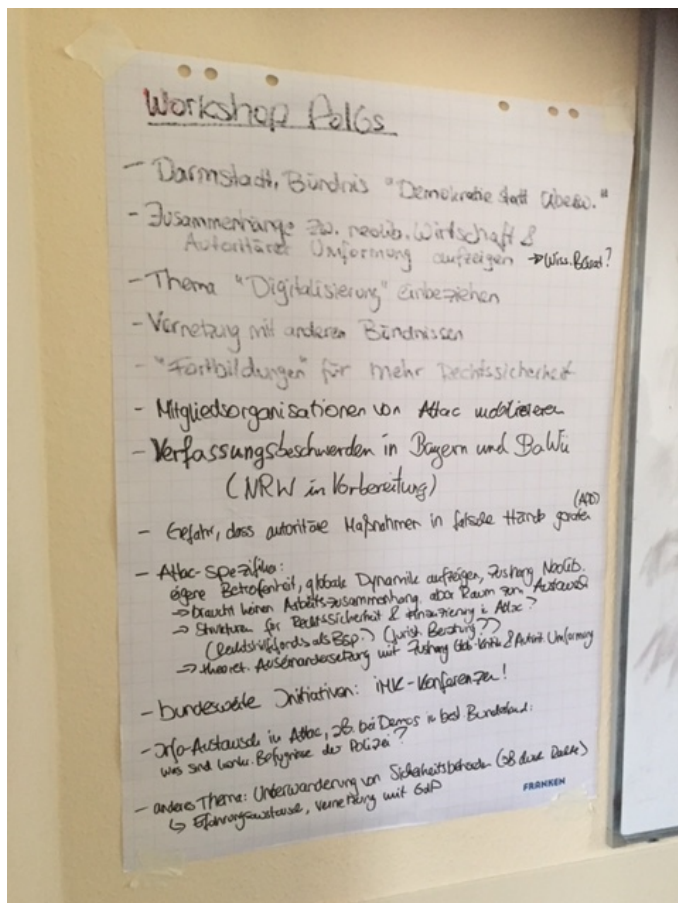 Workshop PolGs
- Darmstadt, Bündnis "Demokratie statt Überw."
- Zusammenhänge zw. neolib. Wirtschaft &
Autoritärer Umformung aufzeigen → Wiss. Beirat?
- Thema "Digitalisierung" einbeziehen
- Vernetzung mit anderen Bündnissen
- "Fortbildungen" für mehr Rechtssicherheit
- Mitgliedsorganisationen von Attac mobilisieren
- Verfassungsbeschwerden in Bayern und BaWü
(NRW in Vorbereitung)
- Gefahr, dass autoritäre Maßnahmen in falsche Hände geraten (AfD)
- Attac-Spezifika:
eigene Betroffenheit, globale Dynamik aufzeigen, Zushang Neolib.
→ braucht keinen Arbeitszusammenhang, aber Raum zum Austausch
→ Strukturen für Rechtssicherheit & Finanzierung i. Attac?
(Rechtshilfefonds als BSP.) (Jurist. Beratung??)
→ theoret. Auseinandersetzung mit Zushang Glob-Kritik & Autorit. Umformung
- bundesweite Initiativen: IMK-Konferenzen!
- Info-Austausch in Attac, zB. bei Demos in best. Bundesland:
was sind konkr. Befugnisse der Polizei?
- anderes Thema: Unterwanderung von Sicherheitsbehörden (zB durch Rechte)
↳ Erfahrungsaustausch, Vernetzung mit GdP
FRANKEN